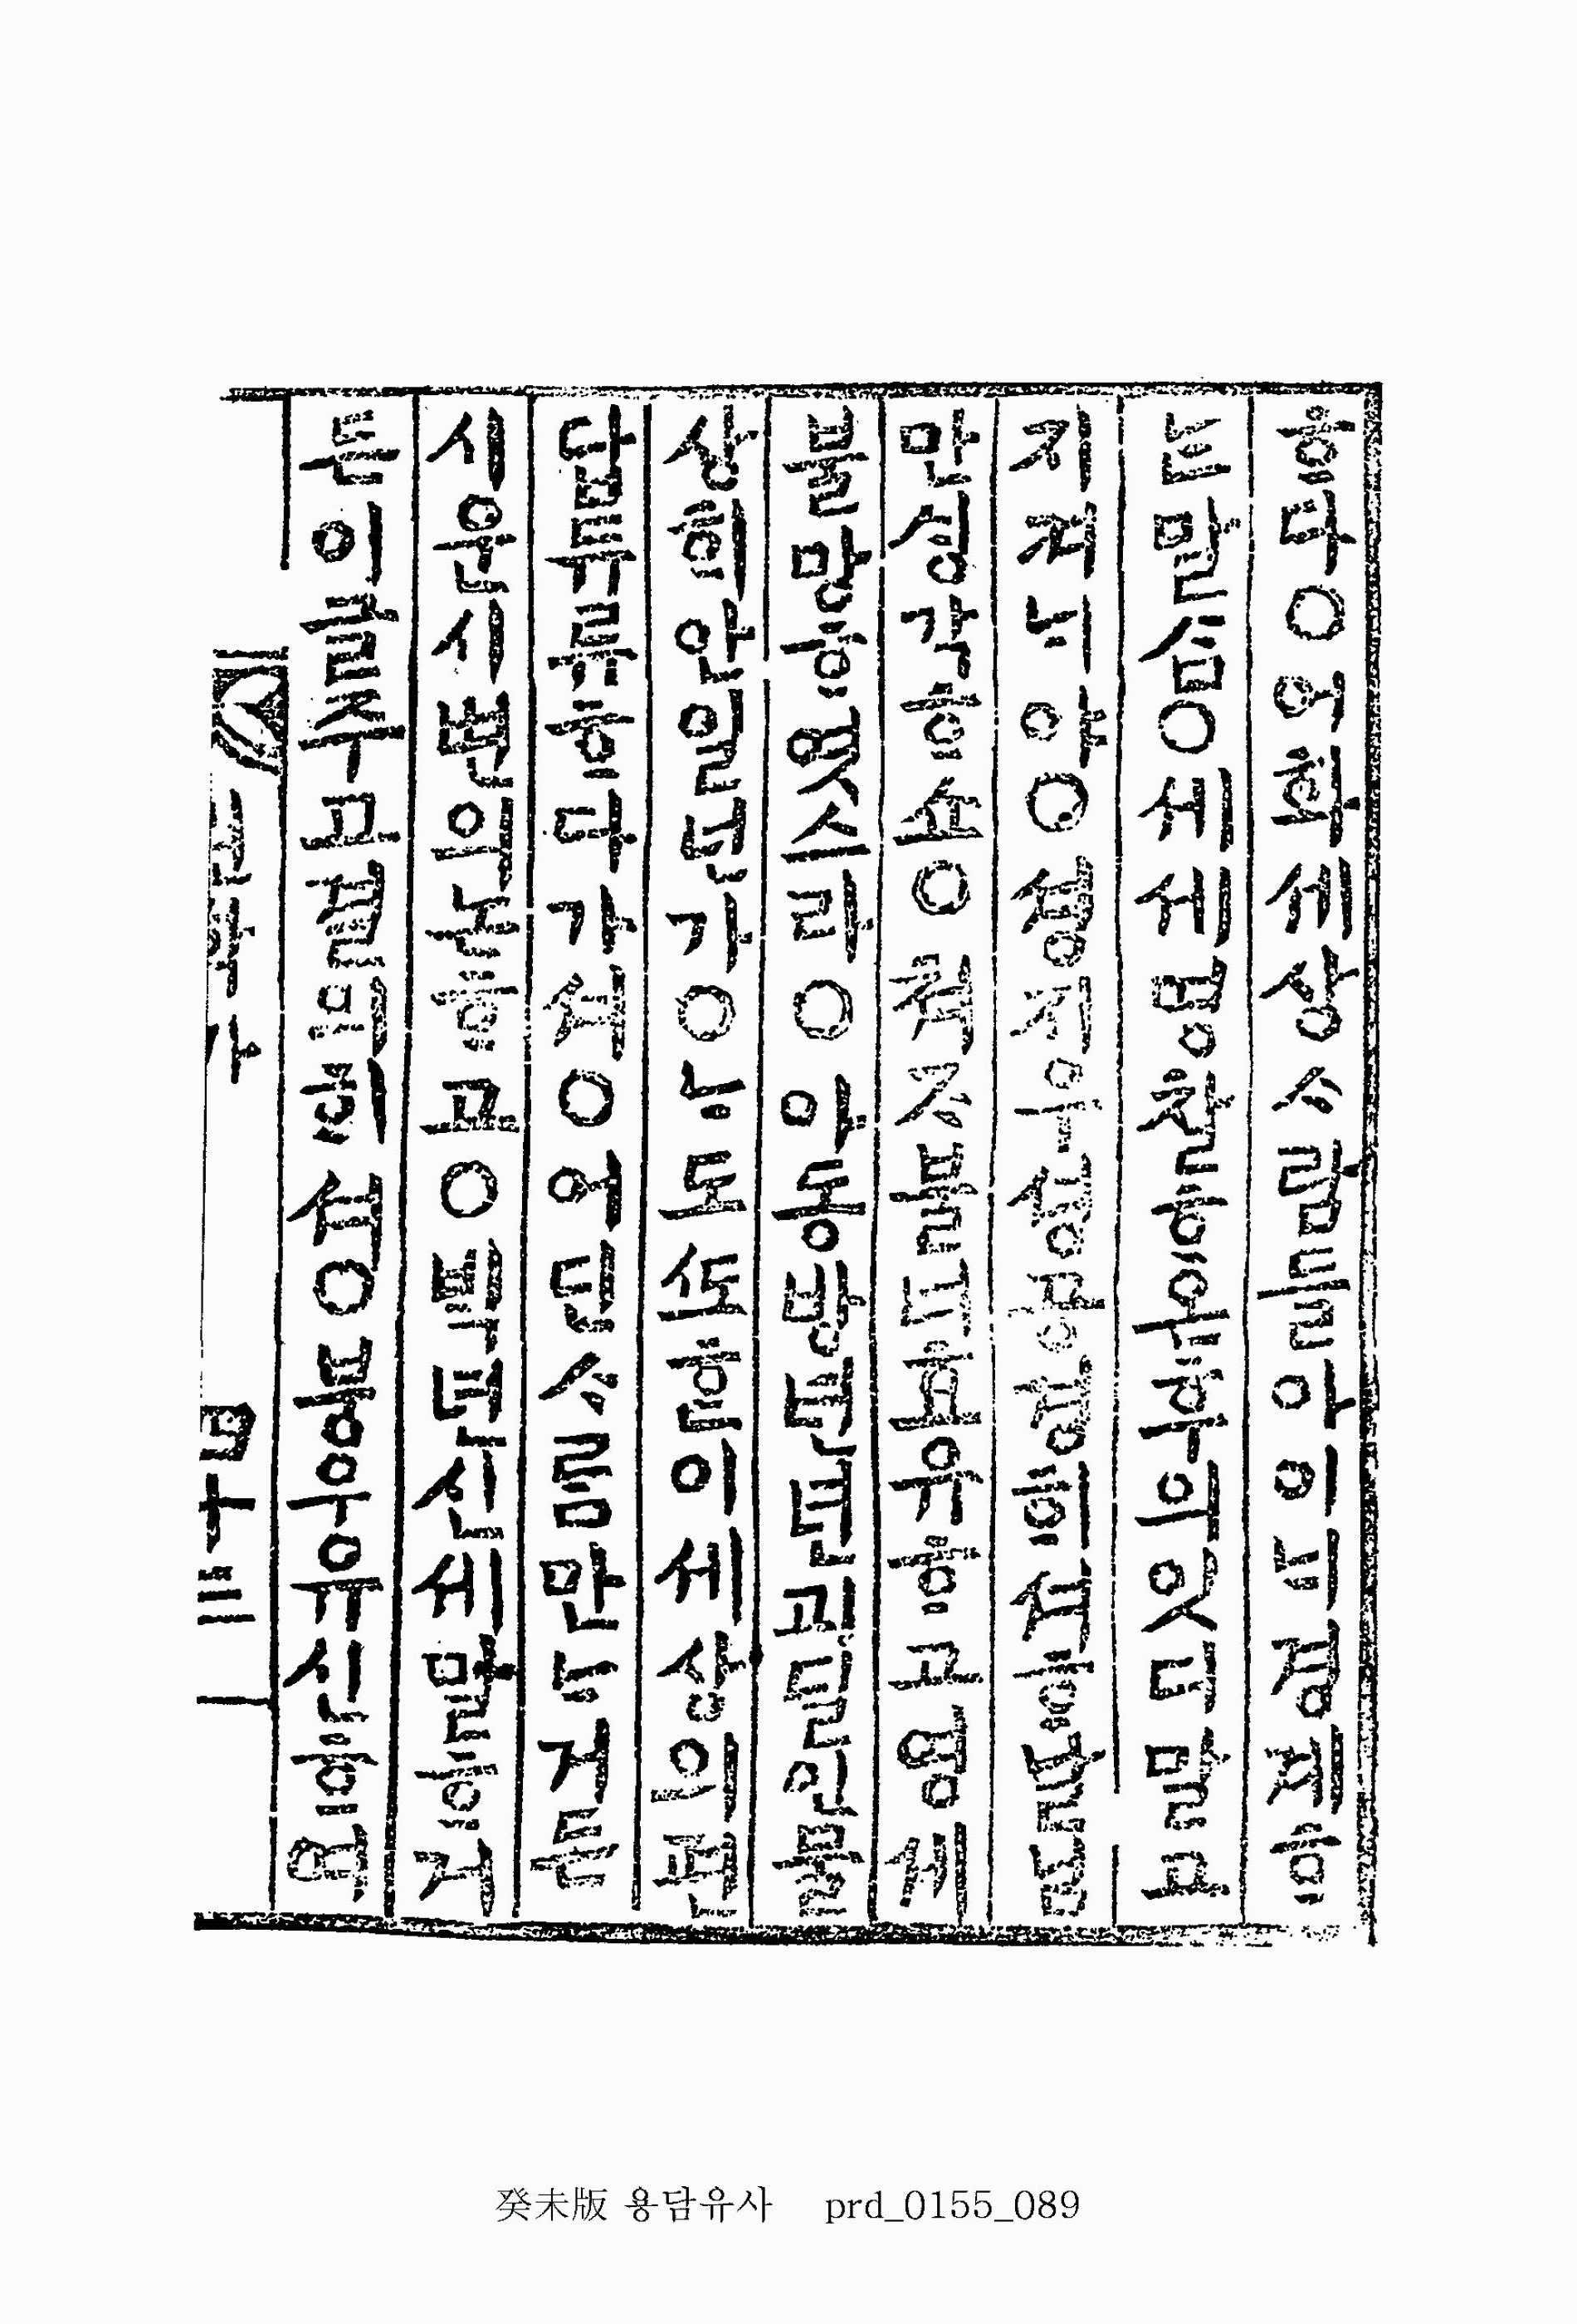 ᄒᆞ다○어화셰상ᄉᆞ람들아이ᄂᆡ경계ᄒᆞ
는말ᄉᆞᆷ○셰셰명찰ᄒᆞ온후의잇디말고
지켜ᄂᆡ야○셩지우셩공경ᄒᆡ셔ᄒᆞᄂᆞᆯ님
만ᄉᆡᆼ각ᄒᆞ쇼○쳐ᄌᆞ불너효유ᄒᆞ고영셰
불망ᄒᆞ엿스라○아동방년년괴딜인물
상ᄒᆡ안일넌가○ᄂᆞ도ᄯᅩᄒᆞᆫ이셰상의편
답듀류ᄒᆞ다가셔○어딘ᄉᆞ름만ᄂᆞ거든
시운시변의논ᄒᆞ고○ᄇᆡᆨ년신셰말ᄒᆞ거
든이글주고결의ᄒᆡ셔○붕우유신ᄒᆞ여
四十三
癸未版 용담유사 prd_0155_089